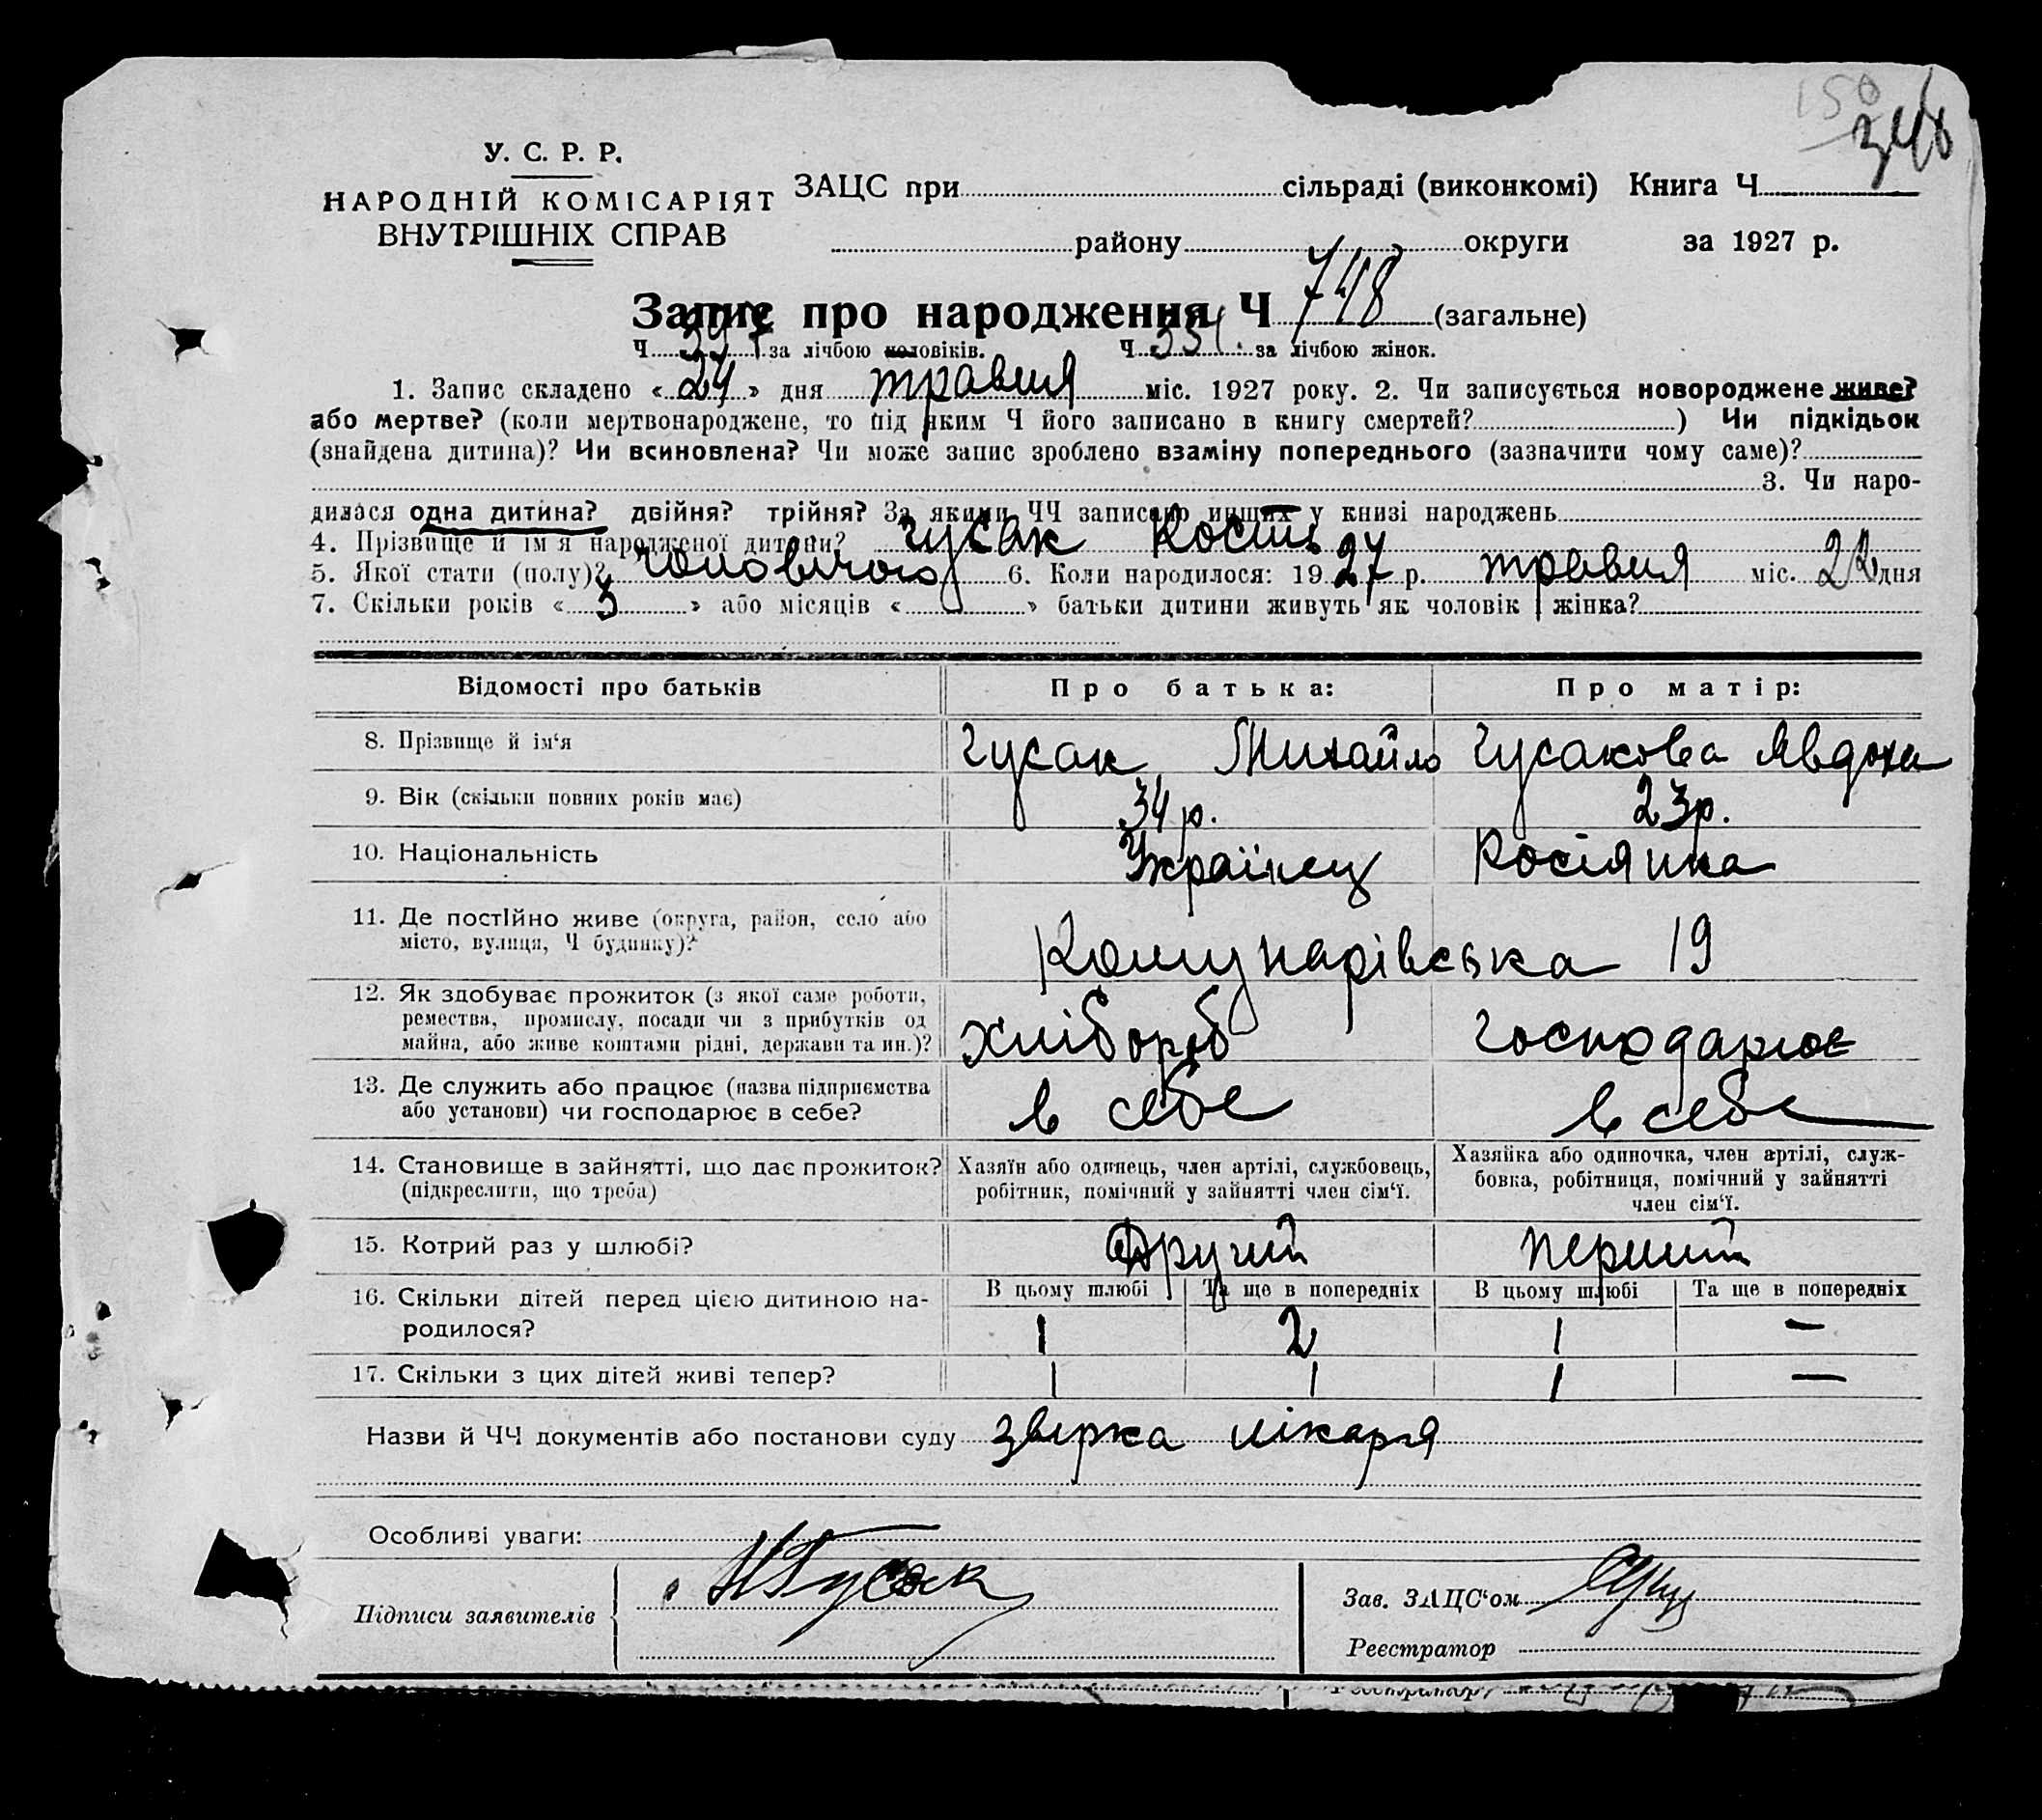 150
348
У. С. Р. Р.
НАРОДНІЙ КОМІСАРІЯТ
ВНУТРІШНІХ СПРАВ
ЗАЦС при сільраді (виконкомі) Книга Ч
району округи за 1927 р.
Запис про народження Ч 748 (загальне)
Ч за лічбою чоловіків. Ч за лічбою жінок.
1. Запис складено « 24 » дня травня міс. 1927 року. 2. Чи записується новороджене живе?
або мертве? (коли мертвонароджене, то під яким Ч його записано в книгу смертей? ) Чи підкідьок
(знайдена дитина)? Чи всиновлена? Чи може запис зроблено взаміну попереднього (зазначити чому саме)?
3. Чи наро-
дилося одна дитина? двійня? трійня? За якими ЧЧ записано инших у книзі народжень
4. Прізвище й ім'я народженої дитини? Гусак Кость
5. Якої статі (полу)? чоловічого 6. Коли народилося: 1927 р. травня міс. 22 дня
7. Скільки років « 3 » або місяців « » батьки дитини живуть як чоловік і жінка?
Відомості про батьків Про батька: Про матір:
8. Прізвище й ім'я Гусак Михайло Гусакова Явдоха
9. Вік (скільки повних років має) 34 р. 23 р.
10. Національність Українец Росіянка
11. Де постійно живе (округа, район, село або
місто, вулиця, Ч будинку)? Комунарівська 19
12. Як здобуває прожиток (з якої саме роботи,
ремества, промислу, посади чи з прибутків од
майна, або живе коштами рідні, держави та ин.)? хлібороб господарює
13. Де служить або працює (назва підприємства
або установи) чи господарює в себе? в себе в себе
14. Становище в зайнятті, що дає прожиток?
(підкреслити, що треба)
Хазяїн або одинець, член артілі, службовець,
робітник, помічний у зайнятті член сім'ї.
Хазяйка або одиночка, член артілі, служ-
бовка, робітниця, помічний у зайнятті
член сім'ї.
15. Котрий раз у шлюбі? Другий перший
16. Скільки дітей перед цією дитиною на-
родилося?
В цьому шлюбі Та ще в попередніх В цьому шлюбі Та ще в попередніх
1 2 1 —
17. Скільки з цих дітей живі тепер? 1 1 1 —
Назви й ЧЧ документів або постанови суду звірка лікаря
Особливі уваги:
Підписи заявителів МГусак
Зав. ЗАЦС'ом
Реєстратор